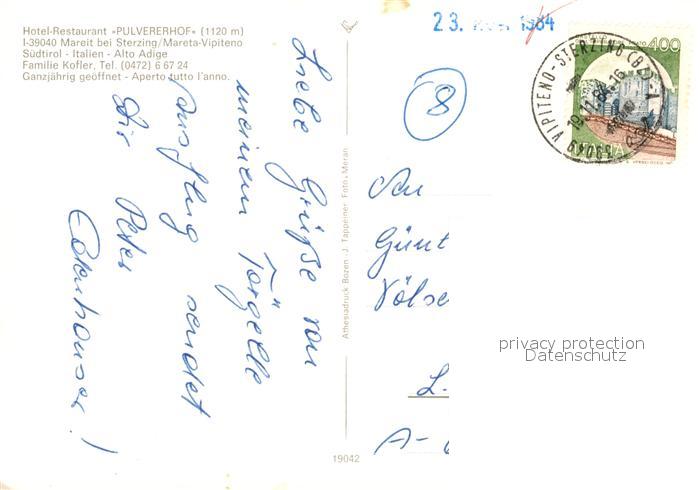 Hotel-Restaurant »PULVERERHOF« (1120 m)
I-39040 Mareit bei Sterzing/Mareta-Vipiteno
Südtirol - Italien - Alto Adige
Familie Kofler, Tel. (0472) 6 67 24
Ganzjährig geöffnet - Aperto tutto l'anno.
Liebe Grüße von
meinem Törgelle
ausflug sendet
Dir Peter
Athesiadruck Bozen - J. Tappeiner Foto, Meran
19042
23. 1984
8
39049 VIPITENO-STERZING (BZ)
400
An
Günt
Völse
L.
A-
privacy protection
Datenschutz